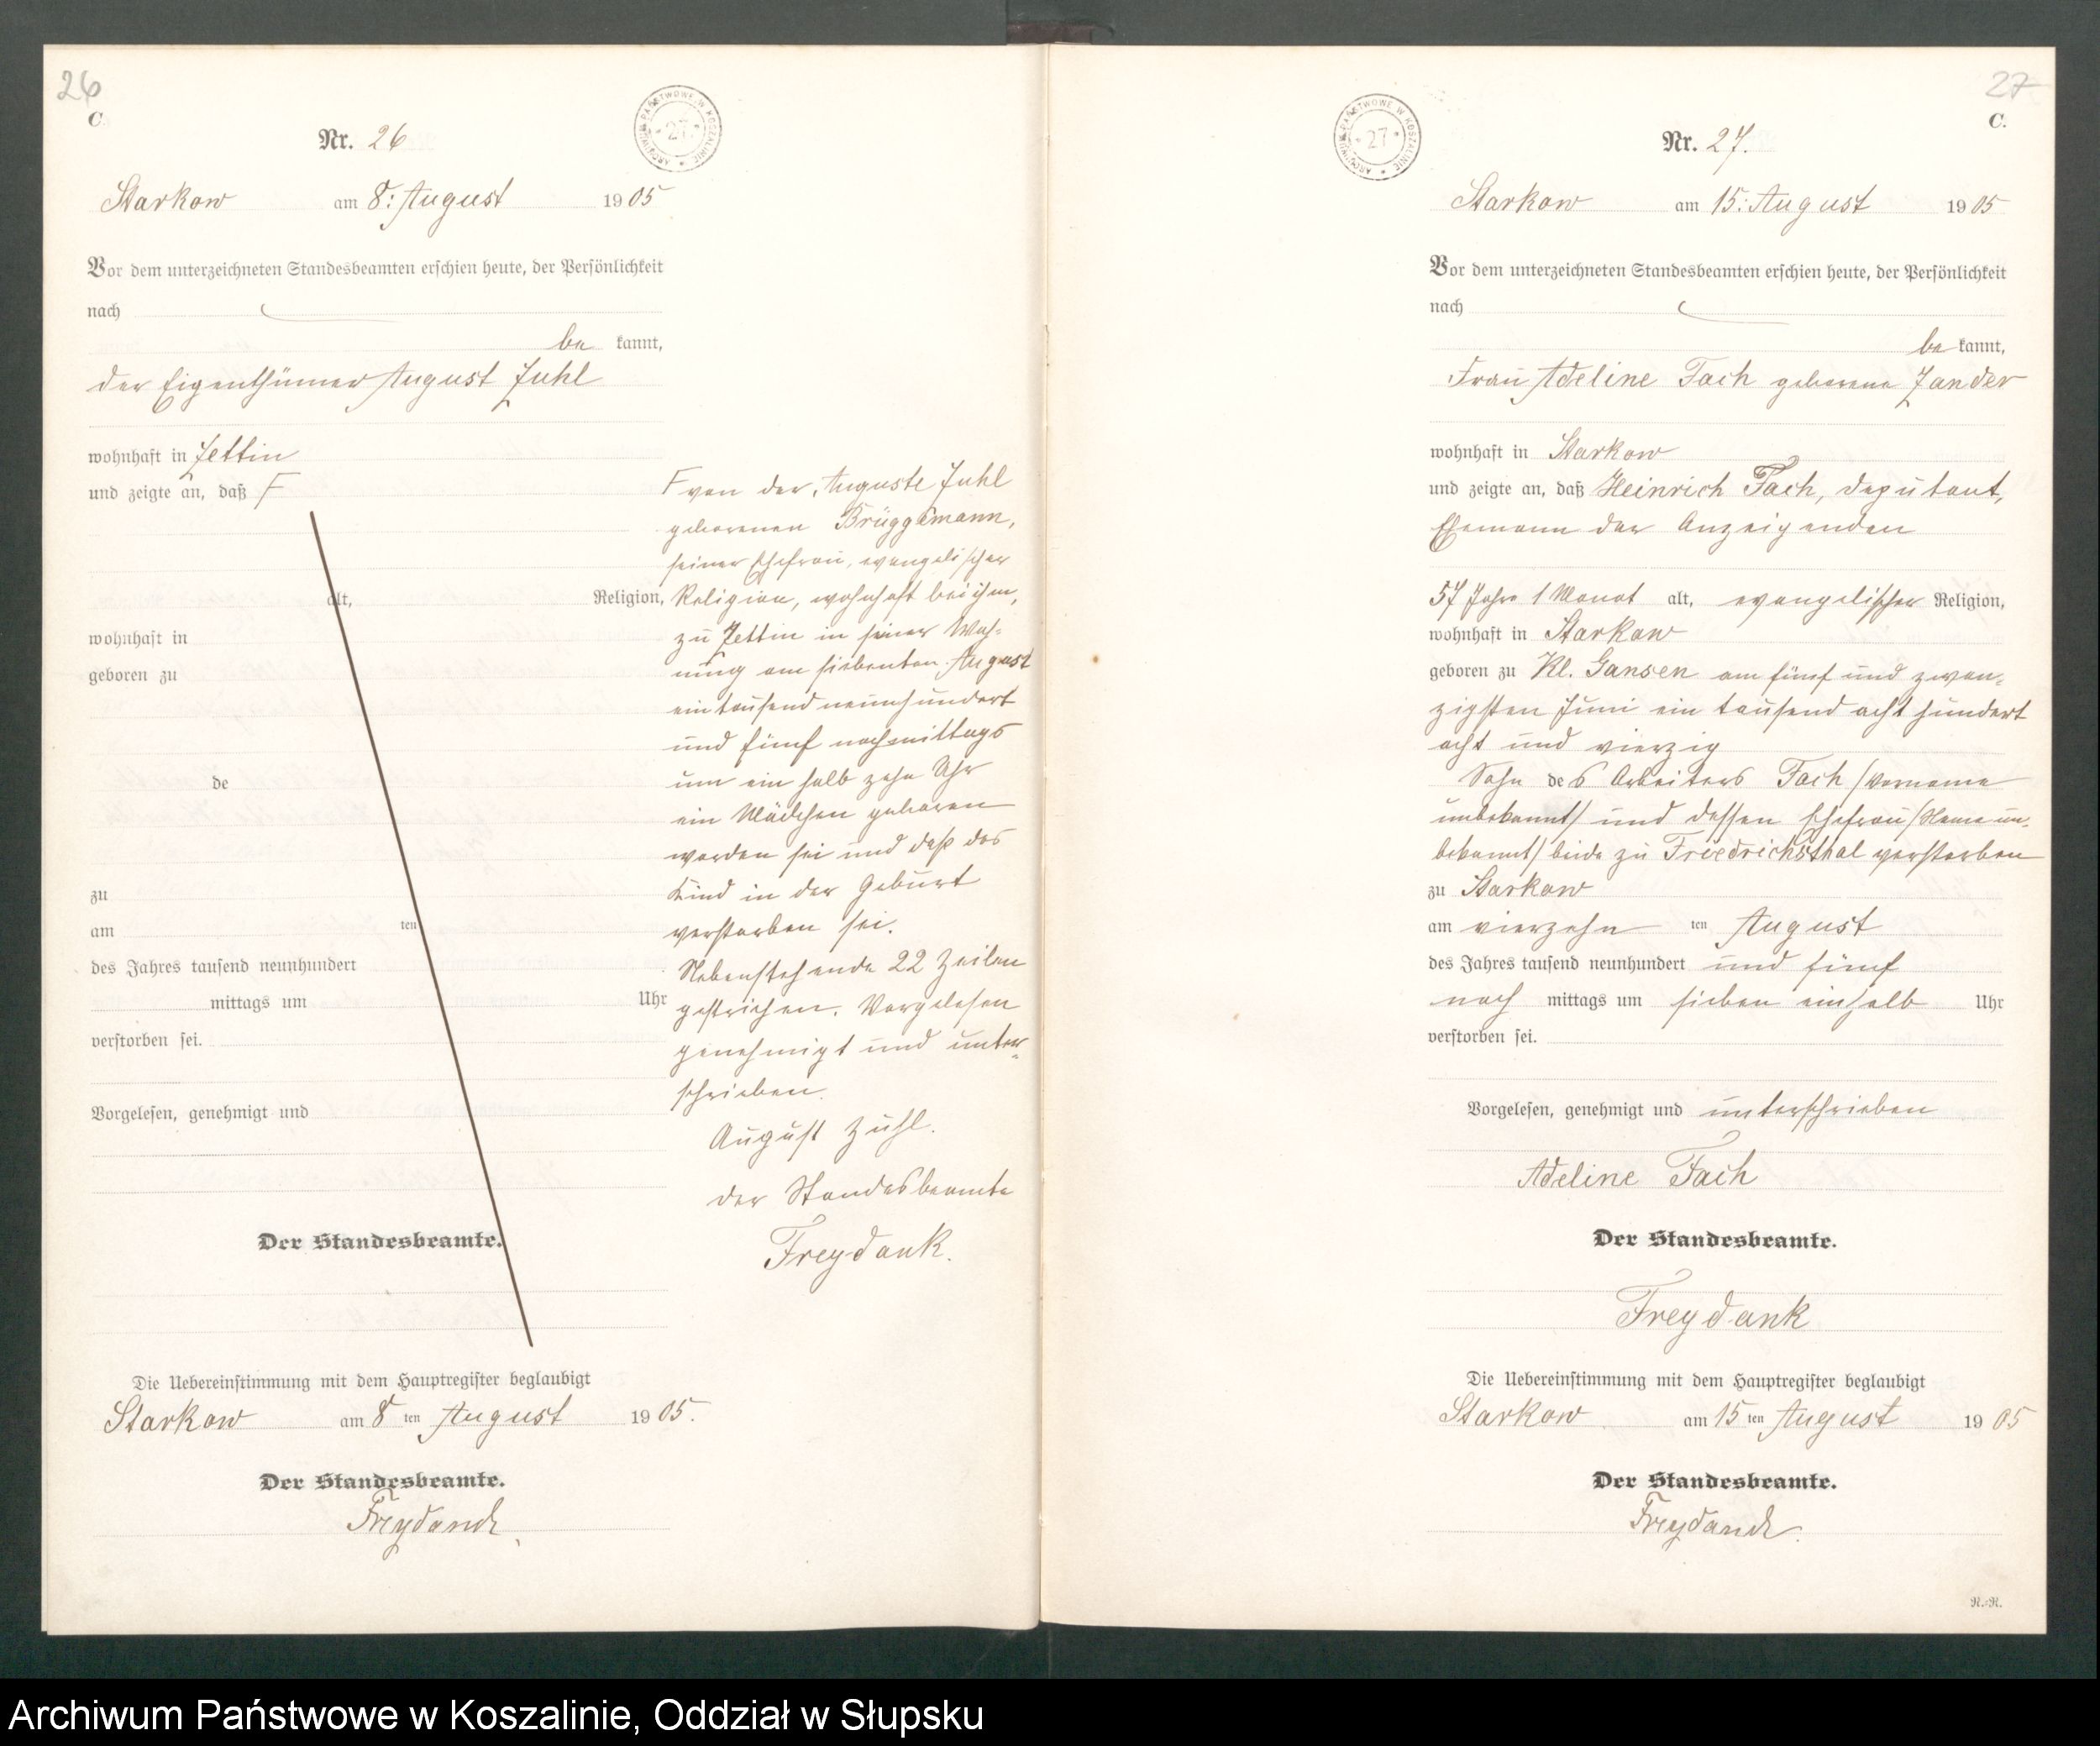 26
C.
Nr. 26
ARCHIWUM PAŃSTWOWE W KOSZALINIE * 27 *
Starkow am 8. August 1905
Vor dem unterzeichneten Standesbeamten erschien heute, der Persönlichkeit
nach
be kannt,
der Eigenthümer August Zuhl
wohnhaft in Zettin
und zeigte an, daß F
alt, Religion,
wohnhaft in
geboren zu
de
zu
am ten
des Jahres tausend neunhundert
mittags um Uhr
verstorben sei.
Vorgelesen, genehmigt und
Der Standesbeamte.
F von der Auguste Zuhl
geborenen Brüggemann,
seiner Ehefrau, evangelischer
Religion, wohnhaft bei ihm,
zu Zettin in seiner Woh-
nung am siebenten August
ein tausend neunhundert
und fünf nachmittags
um ein halb zehn Uhr
ein Mädchen geboren
worden sei und daß das
Kind in der Geburt
verstorben sei.
Nebenstehende 22 Zeilen
gestrichen. Vorgelesen
genehmigt und unter-
schrieben.
August Zuhl.
der Standesbeamte
Freydank.
Die Uebereinstimmung mit dem Hauptregister beglaubigt
Starkow am 8 ten August 1905.
Der Standesbeamte.
Freydank.
27
C.
ARCHIWUM PAŃSTWOWE W KOSZALINIE * 27 *
Nr. 27.
Starkow am 15. August 1905
Vor dem unterzeichneten Standesbeamten erschien heute, der Persönlichkeit
nach
be kannt,
Frau Adeline Fach geborene Zander
wohnhaft in Starkow
und zeigte an, daß Heinrich Fach, Deputant,
Ehemann der Anzeigenden
57 Jahre 1 Monat alt, evangelischer Religion,
wohnhaft in Starkow
geboren zu Kl. Gansen am fünf und zwan-
zigsten Juni ein tausend acht hundert
acht und vierzig
Sohn des Arbeiters Fach /Vorname
unbekannt/ und dessen Ehefrau /Name un-
bekannt/ beide zu Friedrichsthal verstorben
zu Starkow
am vierzehn ten August
des Jahres tausend neunhundert und fünf
nach mittags um sieben einhalb Uhr
verstorben sei.
Vorgelesen, genehmigt und unterschrieben
Adeline Fach
Der Standesbeamte.
Freydank
Die Uebereinstimmung mit dem Hauptregister beglaubigt
Starkow am 15 ten August 1905
Der Standesbeamte.
Freydank.
R.-R.
Archiwum Państwowe w Koszalinie, Oddział w Słupsku